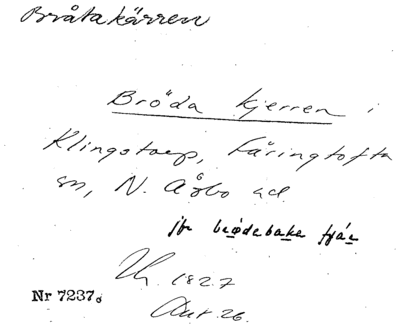 Bråtakärren
Bröda kjerren i
Klingstorp, Färingtofta
sn, N. Åsbo hd
jfr brödebaka kjär
1827
Akt 26.
Nr 7237.